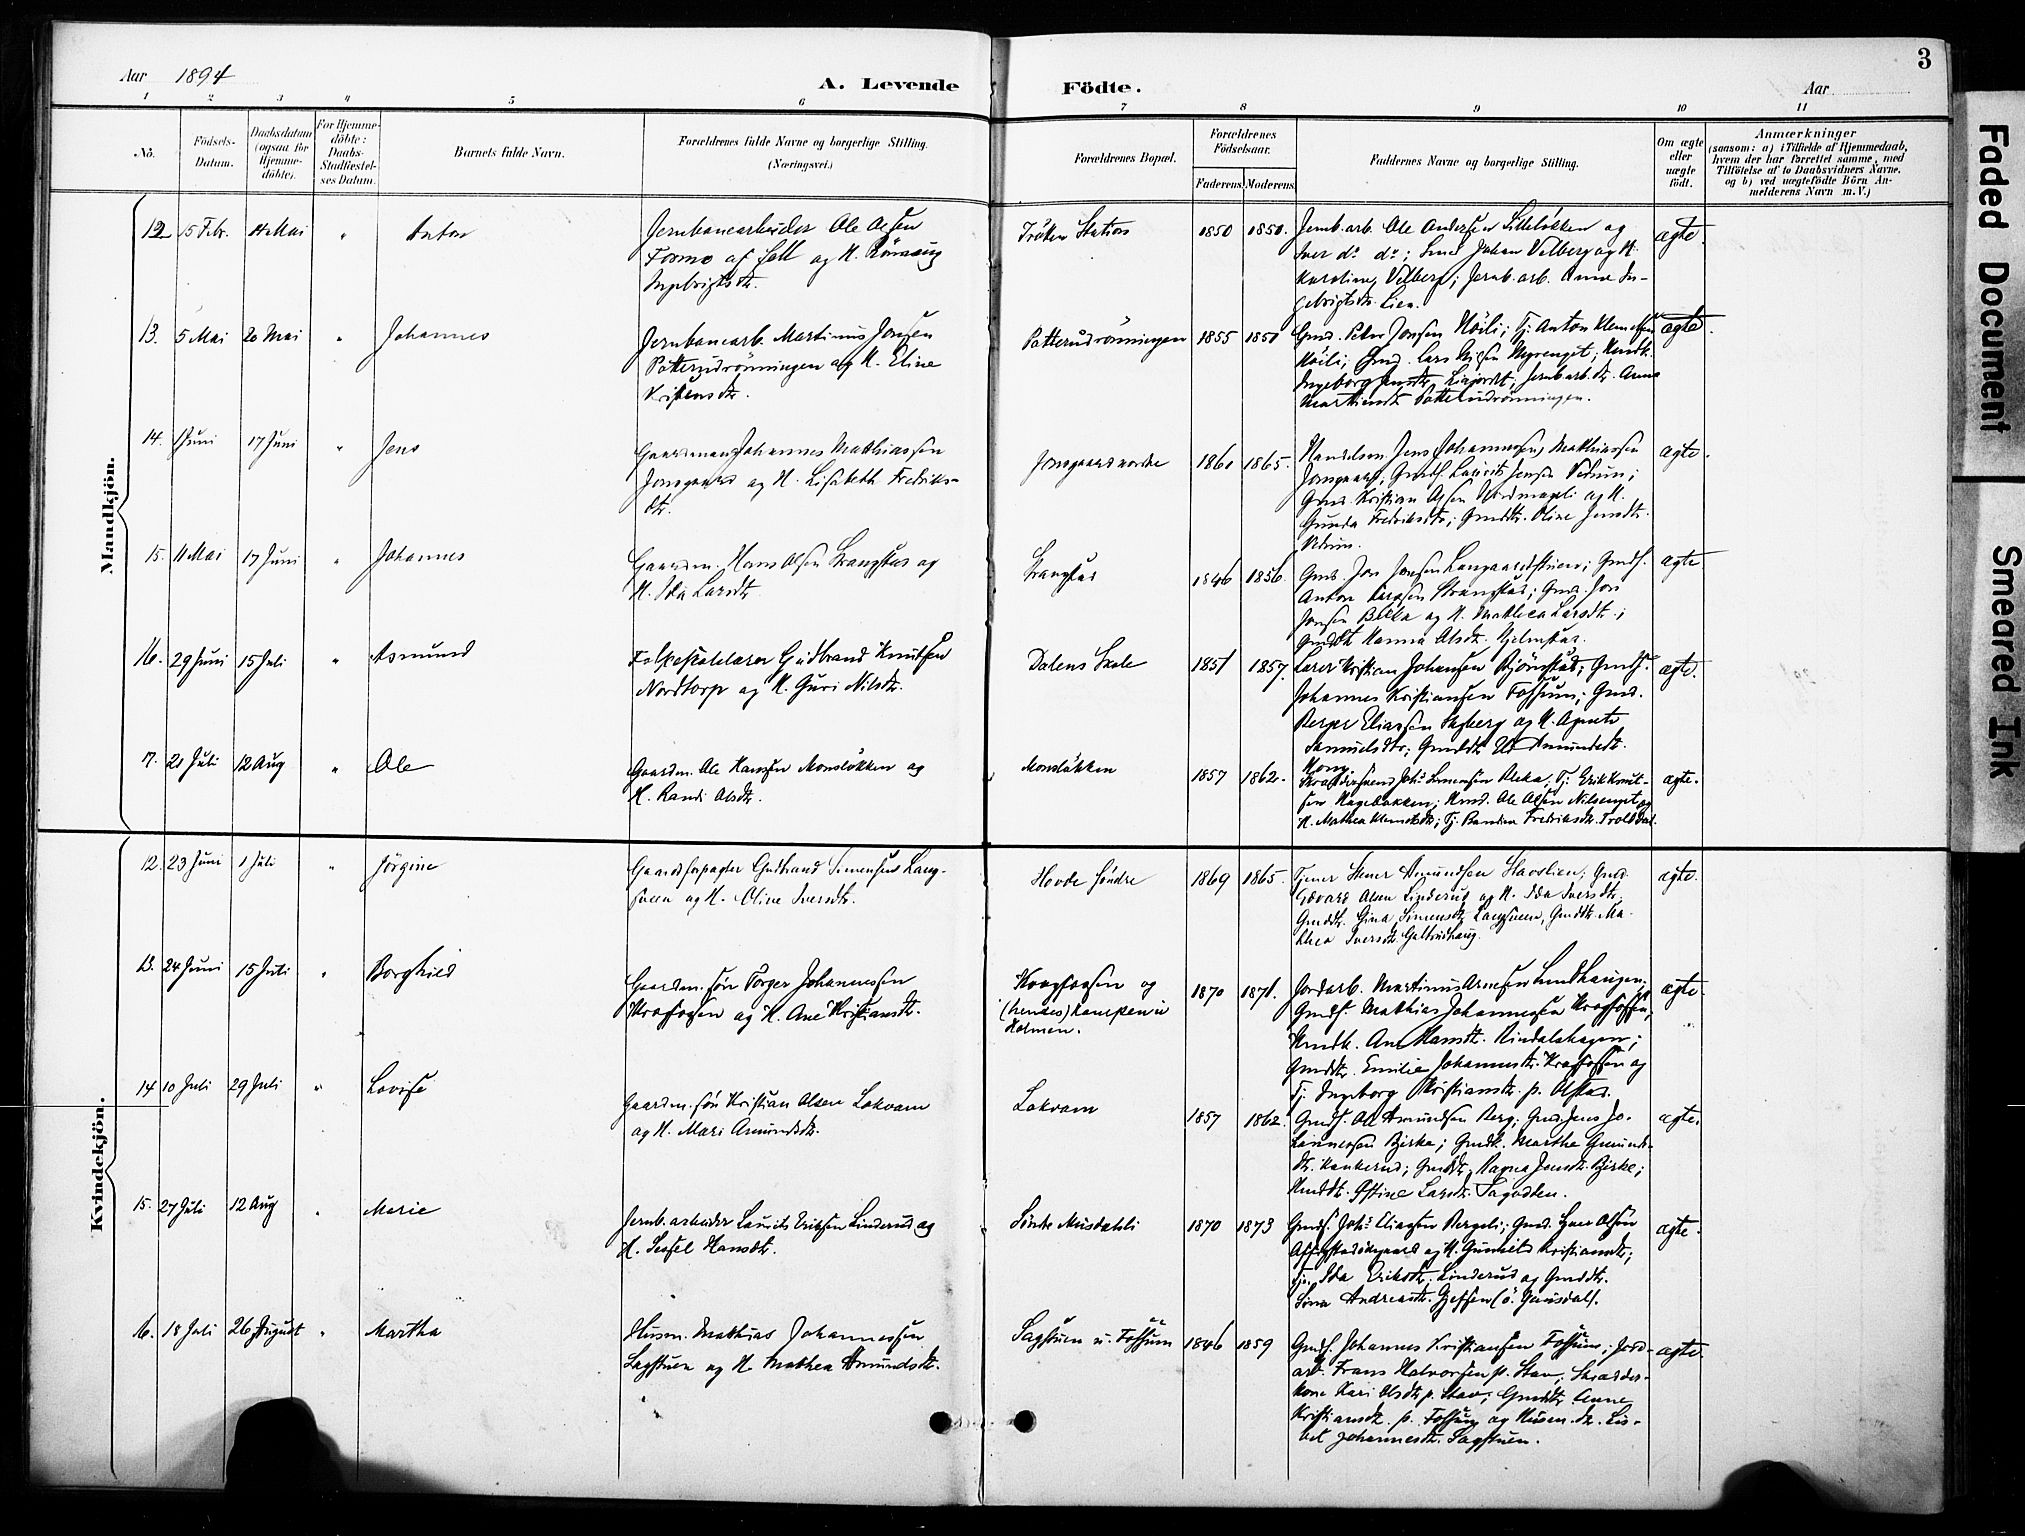 Aar 1894
A. Levende Födte.
Aar
3
1 2 3 4 5 6 7 8 9 10 11
No.
Födsels-Datum.
Daabsdatum (ogsaa for Hjemmedöbte).
For Hjemmedöbte: Daabs-Stadfæstelses Datum.
Barnets fulde Navn.
Forældrenes fulde Navne og borgerlige Stilling. (Næringsvei.)
Forældrenes Bopæl.
Forældrenes Födselsaar.
Faderens. Moderens.
Faddernes Navne og borgerlige Stilling.
Om ægte eller uægte födt.
Anmærkninger
(saasom: a) i Tilfælde af Hjemmedaab,
hvem der har forrettet samme, med
Tilföielse af to Daabsvidners Navne.
og b) ved uægtefödte Börn Anmelderens Navn m. V.)
Mandkjön.
12 15 Febr. Mai " Anton
Jernbanearbeider Ole Olsen
Formo af Sell og H. Rönnaug
Ingebrigtsdtr.
Station 1850 1850.
Jernb. arb. Ole Andersen Lilleløkken og
Iver do do; Smed Johan Velberg og H.
Karoline Velberg; Jernb. arb. Anne In-
gebrigtsdtr. Lien.
ægte.
13. 5 Mai 20 Mai " Johannes
Jernbanearb. Martinus Jonsen
Potterudrönningen og H. Eline
Kristensdtr.
Potterudrönningen 1855 1850
Gmd. Peter Jonsen Höili; Tj. Anton Klemetsen
Höili; Gmd. Lars Myrenget;
Ingeborg Jernb. arb. dtr. Anna
Martinusdtr. Potterudrönningen.
ægte.
14. 1 Juni 17 Juni " Jens
Gaardmand Johannes Mathiassen
Jonsgaard og H. Lisabeth Fredriks-
dtr.
Jonsgaard nordre 1861 1865.
Handelsm. Jens Johannessen, Mathiassen
Jonsgaard; Gmds. Laurits Jensen Vedum;
Gmd. Kristian Olsen og H.
Gunda Fredriksdtr; Gmddtr. Oline Jensdtr.
Vedum.
ægte.
15. 11 Mai 17 Juni " Johannes
Gaardm. Hans Olsen Strangstad og
H. Ida Larsdtr.
Strangstad 1846 1856.
Gmd. Jon Jonsen Langaardstuen; Gmds.
Anton Larssen Strangstad; Gmd. Jon
Jonsen Bakka og H. Mathea Larsdtr.;
Gmddtr. Hanna Olsdtr. Hjelmstad.
ægte
16. 29 Juni 15 Juli " Asmund
Folkeskolelærer Gudbrand Knudsen
Nordtorp og H. Guri Nilsdtr.
Dalens Skole 1851 1857.
Lærer Kristian Johansen Björnstad; Gmds.
Johannes Kristiansen Fossum; Gmd.
Berger Eliassen Sagberg og H. Agnete
Samuelsdtr; Gmddtr. Amundsdtr.
ægte.
17. 21 Juli 12 Aug " Ole
Gaardm. Ole Hansen Monsløkken og
H. Randi Olsdtr.
Monsløkken 1857 1862.
Johs Simensen Bleka; Tj. Erik Knut-
sen Hagebakken; Gmd. Ole Olsen og
H. Mathea Klemetsdtr; Tj. Fredriksdtr. Trolldal.
ægte.
Kvindekjön.
12. 23 Juni 1 Juli " Jörgine
Gaardforpagter Gudbrand Simensen Lang-
sveen og H. Oline Iversdtr.
Hovde Söndre 1869 1865.
Tjener Stener Amundsen Slavslien; Gmd.
Edvard Olsen Linderud og H. Ida Iversdtr.
Gmddtr. Gina Simensdtr. Langsveen, Gmddtr. Ma-
thea Iversdtr.
ægte.
13. 24 Juni 15 Juli " Borghild
Gaardm. sön Torger Johannessen
Kragfossen og H. Ane Kristiansdtr.
Kragfossen og
(hendes) Kampen i
Holmen.
1870 1871.
Jordarb. Martinus Arnesen Lundhaugen;
Gmds. Mathias Johannessen Kragfossen;
Ane Hansdtr. Rindalshagen;
Gmddtr. Emilie Johannesdtr. Kragfossen og
Tj. Ingeborg Kristiansdtr. p. Olstad.
ægte.
14 10 Juli 29 Juli " Lovise
Gaardm. sön Kristian Olsen Lokvam
og H. Mari Amundsdtr.
Lokvam 1857 1862.
Gmds. Ole Amundsen Berg; Gmd. Jens Jo-
hannessen Birke; Gmdk. Marthe Gunnars-
dtr. Kankerud; Gmddtr. Ragna Jensdtr. Birke;
Östine Larsdtr. Sagodden.
ægte.
15. 27 Juli 12 Aug " Marie
Jernb. arbeider Laurits Eriksen Linderud og
H. Sessel Hansdtr.
Söndre Musdahli 1870 1873
Gmds. Johs Eliassen Bergeli; Gmd. Iver Olsen
og H. Gunhild Kristiansdtr;
Tj. Ida Eriksdtr. Linderud og Gmddtr.
Sina Andreasdtr. (ö. Gausdal).
ægte.
16. 18 Juli 26 August " Martha
Husm. Mathias Johannessen
Sagstuen og H. Mathea Amundsdtr.
Sagstuen u. Fossum 1846 1859
Gmds. Johannes Kristiansen Fossum; Jord-
arb. Frans Halvorsen p. Stav; Skrædder-
kone Kari Olsdtr. p. Stav; Gmddtr. Anne
Kristiansdtr. p. Fossum og Husm. dtr. Lis-
bet Johannesdtr. Sagstuen.
ægte.
Faded Document
Smeared Ink